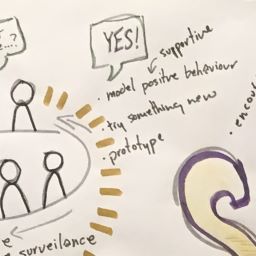 ..?
YES!
supportive
• model positive behaviour
• try something new
• prototype
surveilance